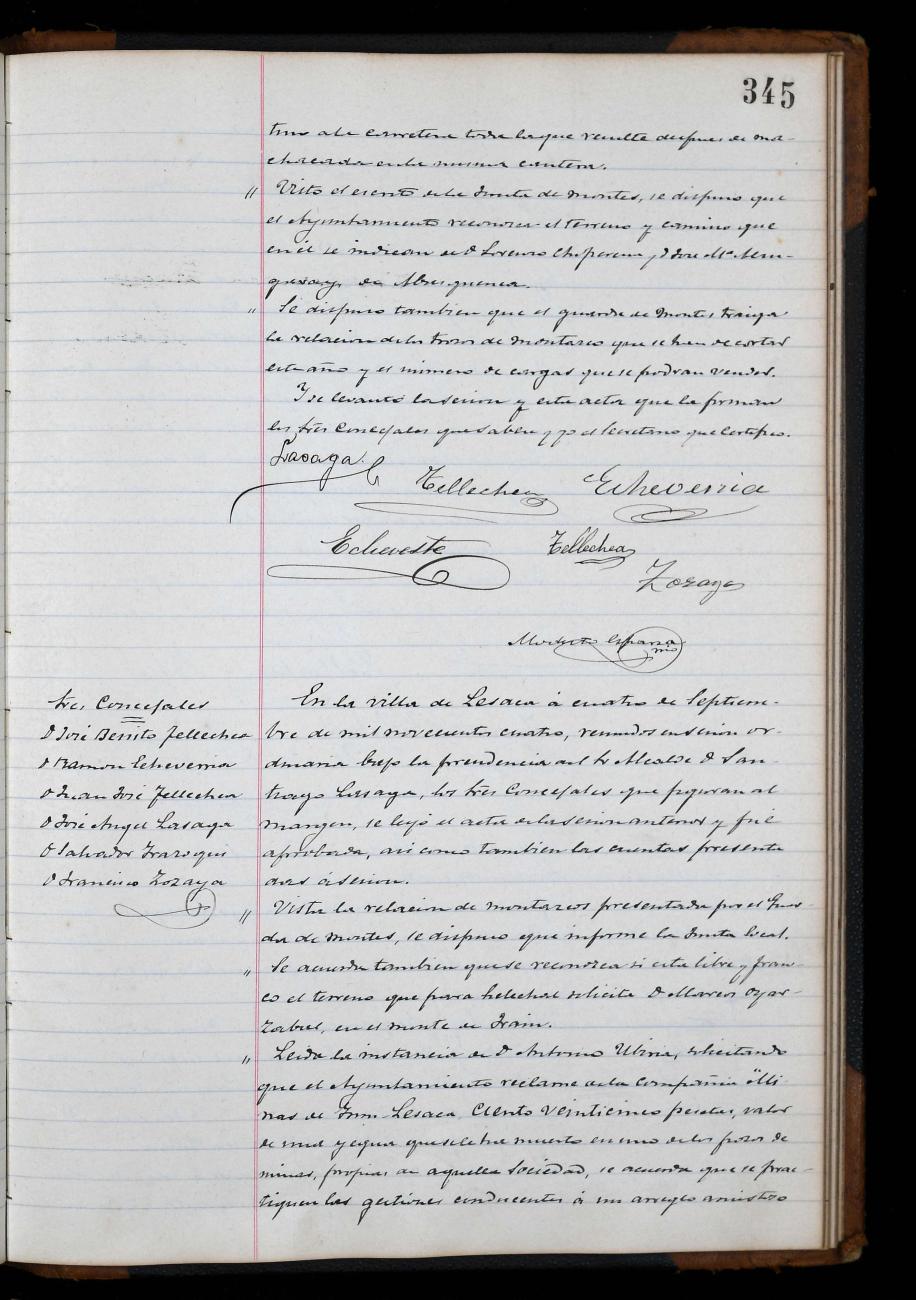 345
tros a la carretera toda la que resulte despues de ma-
chacada en la misma cantera.
" Visto el escrito de la Junta de Montes, se dispuso que
el Ayuntamiento reconozca el terreno y camino que
en él se indican de D. Lorenzo y D. José Mª
de
" Se dispuso tambien que el guarda de Montes traiga
la relacion de los trozos de montazco que se han de cortar
este año y el número de cargas que se podran vender.
Y se levantó la sesion y esta acta que la firman
los Sres Concejales que saben, y yo el Secretario que certifico.
Lasaga
Tellechea Echeverria
Echeveste Tellechea
Zozaya
Modesto Esparza
Sres Concejales
D José Benito Tellechea
D Ramon Echeverria
D Juan José Tellechea
D José Angel Lasaga
D Salvador Irazoqui
D Francisco Zozaya
En la villa de Lesaca á cuatro de Septiem-
bre de mil novecientos cuatro, reunidos en sesion or-
dinaria bajo la presidencia del Sr Alcalde D San-
tiago Lasaga, los Sres Concejales que figuran al
margen, se leyó el acta de la sesion anterior y fué
aprobada, asi como tambien las cuentas presenta
das á sesion.
" Vista la relacion de montazcos presentada por el Guar-
da de Montes, se dispuso que informe la Junta local.
" Se acuerda tambien que se reconozca si esta libre y fran-
co el terreno que para helechal solicita D Marcos Oyar-
zabal, en el monte de Frain.
" Leida la instancia de D Antonio Ubiria, solicitando
que el Ayuntamiento reclame de la Compañia "Mi-
nas de Irun-Lesaca, Ciento veinticinco pesetas, valor
de una yegua que se le ha muerto en uno de los pozos de
minas, propias de aquella Sociedad, se acuerda que se prac-
tiquen las gestiones conducentes á un arreglo amistoso